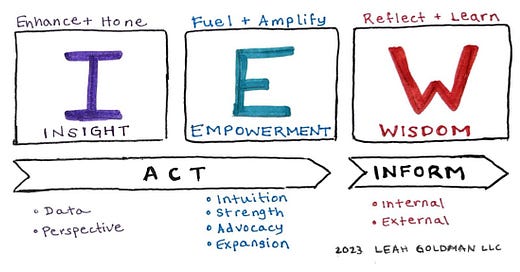 Enhance + Hone
Fuel + Amplify
Reflect + Learn
I
E
W
INSIGHT
EMPOWERMENT
WISDOM
ACT
INFORM
• Data
• Perspective
• Intuition
• Strength
• Advocacy
• Expansion
• Internal
• External
2023 LEAH GOLDMAN LLC